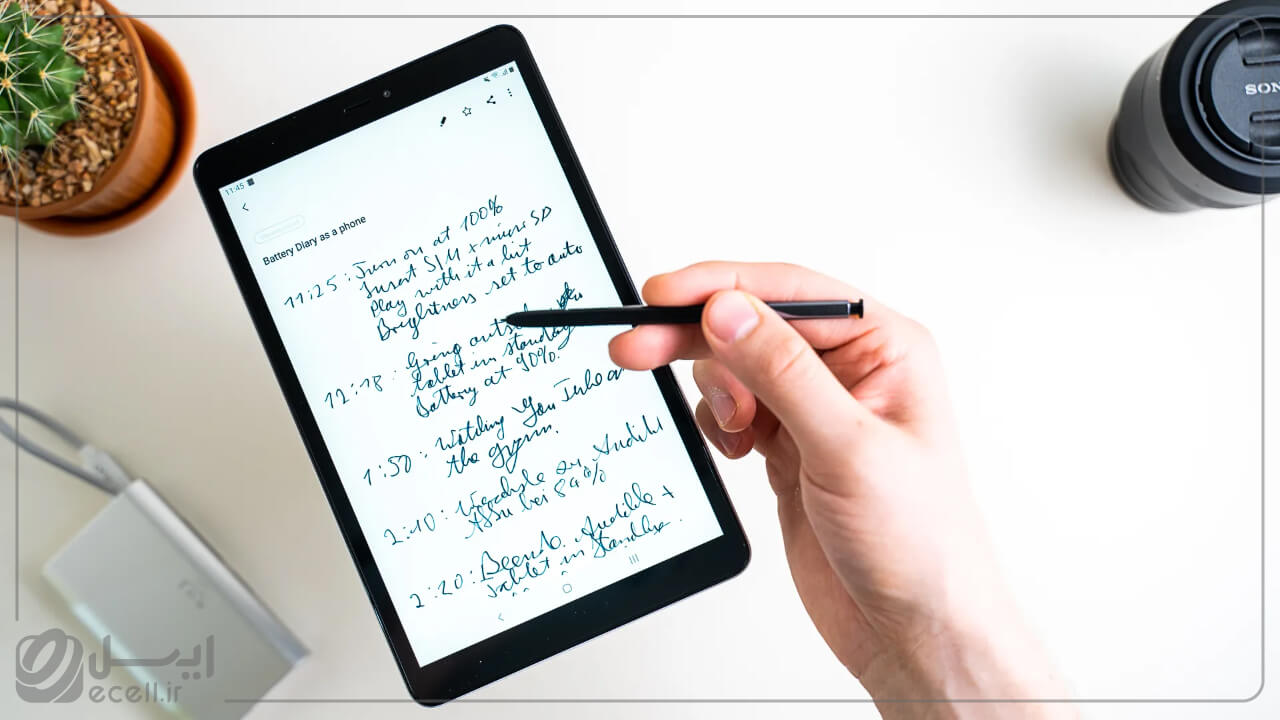 11:45
Battery Diary as a phone
11:25 : Turn on at 100%
Insert SIM + micro SD
Play with it a bit
Brightness set to auto
12:18 : Going
tablet in standby
Battery at 90%.
1:50 : Watching You Tube at
the gym.
2:10 : Wechsle zu Audible
Akku bei 84%
2:20 : Beende Audible +
Tablet in Standby.
SON
ایسل
ecell.ir